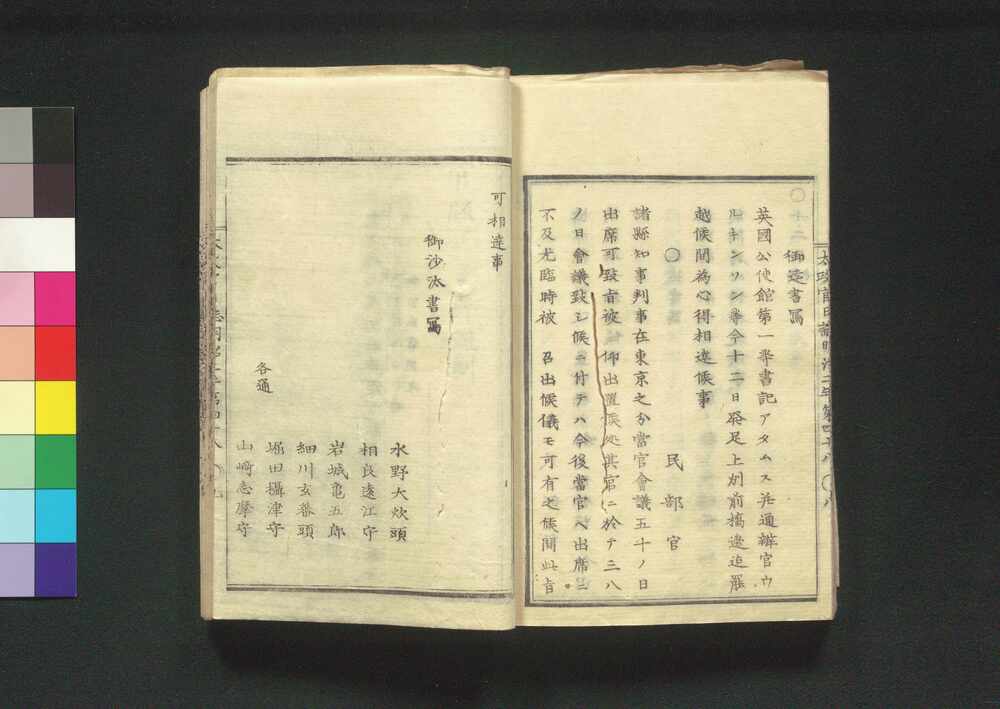 ○十二
御達書寫
英國公使館第一等書記アタムス並通辯官ウ
ルキンソン等今十二日發足上州前橋邊迄罷
越候間為心得相達候事
○
民部官
諸縣知事判事在東京之分當官會議五十ノ日
出席可致旨被 仰出置候処其官ニ於テ三八
ノ日會議致シ候ニ付テハ今後當官ヘ出席ニ
不及尤臨時被 召出候儀モ可有之候間此旨
太政官日誌明治二年第四十八 ○八
可相達事
御沙汰書寫
水野大炊頭
相良遠江守
岩城亀五郎
細川玄蕃頭
堀田攝津守
山崎志摩守
各通